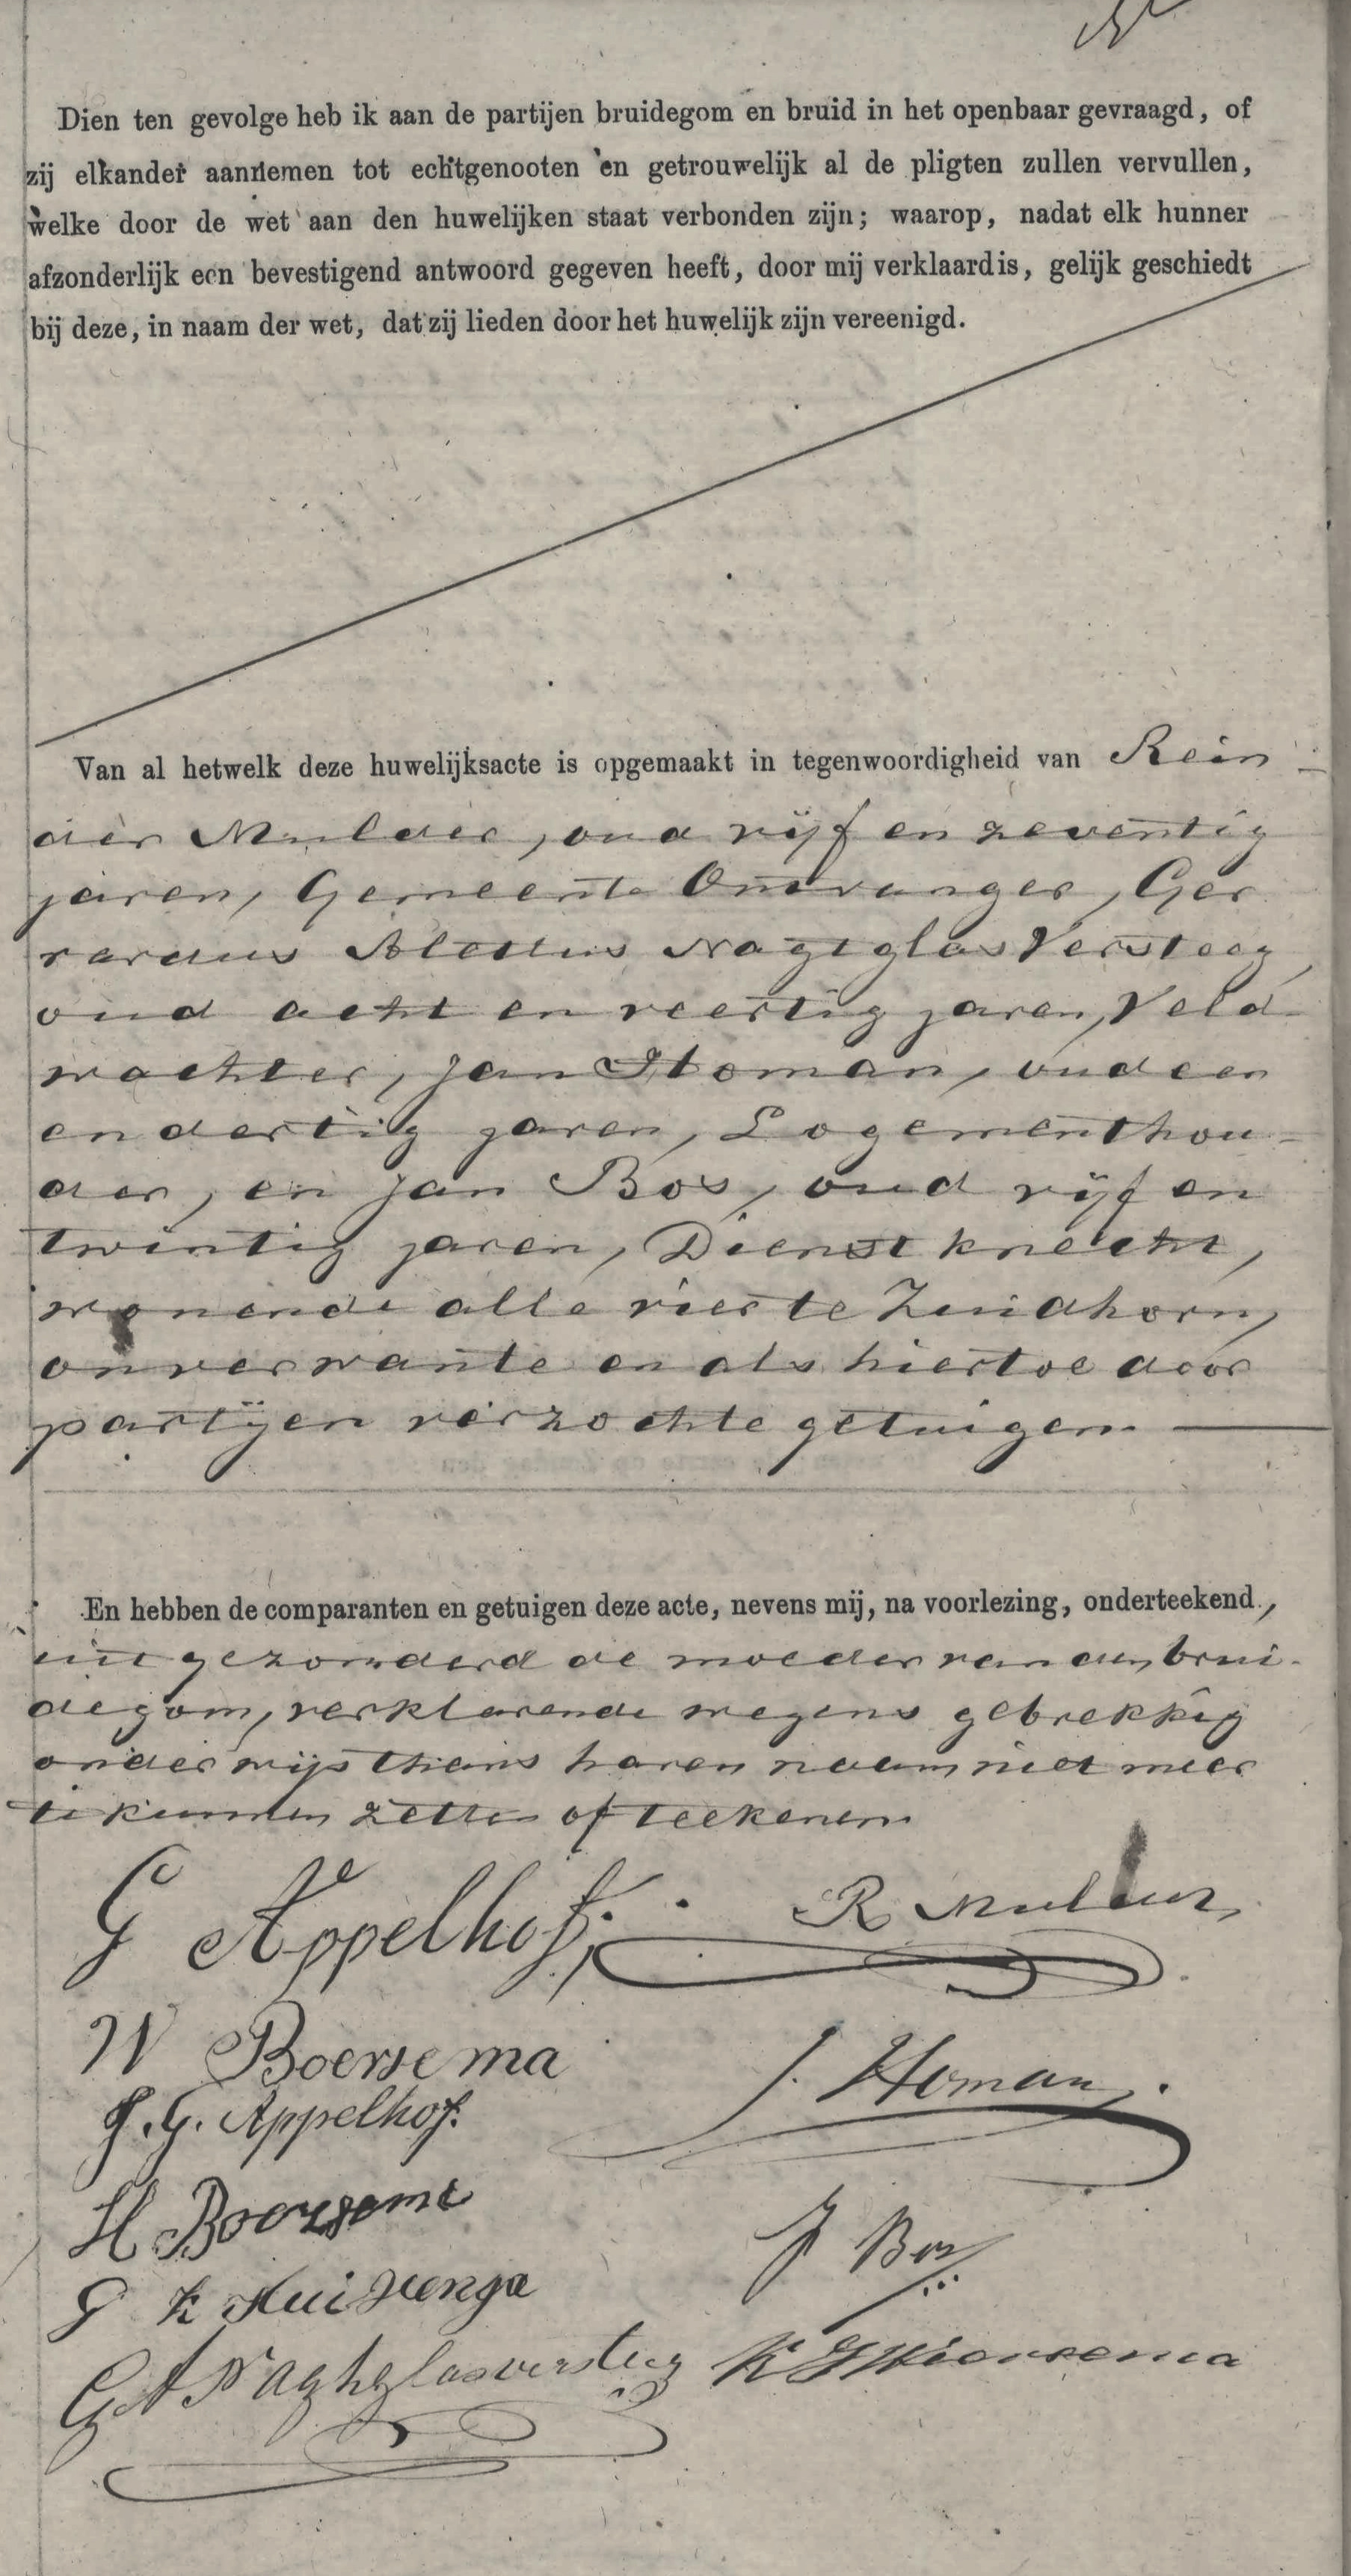 Dien ten gevolge heb ik aan de partijen bruidegom en bruid in het openbaar gevraagd, of
zij elkander aannemen tot echtgenooten en getrouwelijk al de pligten zullen vervullen,
welke door de wet aan den huwelijken staat verbonden zijn; waarop, nadat elk hunner
afzonderlijk een bevestigend antwoord gegeven heeft, door mij verklaard is, gelijk geschiedt
bij deze, in naam der wet, dat zij lieden door het huwelijk zijn vereenigd.
Van al hetwelk deze huwelijksacte is opgemaakt in tegenwoordigheid van Rein-
der Mulder, oud vijf en zeventig
jaren, Gemeente Ontvanger, Ger
rardus Alettus Nagtglas Versteeg
oud acht en veertig jaren, Veld-
wachter, Jan Homan, oud een
en dertig jaren, Logementhou-
der, en Jan Bos, oud vijf en
twintig jaren, Dienstknecht,
wonende alle vier te Zuidhorn,
onverwante en als hiertoe door
partijen verzochte getuigen.
En hebben de comparanten en getuigen deze acte, nevens mij, na voorlezing, onderteekend,
uitgezonderd de moeder van den brui-
degom, verklarende wegens gebrekkig
onderwijs thans haren naam niet meer
te kunnen zetten of teekenen.
G Appelhof. R Mulder
W Boersema
J. Homan
J. G. Appelhof.
H Boersema
J Bos
G K Huizenga
G A Naghglasversteeg K J Wiersema